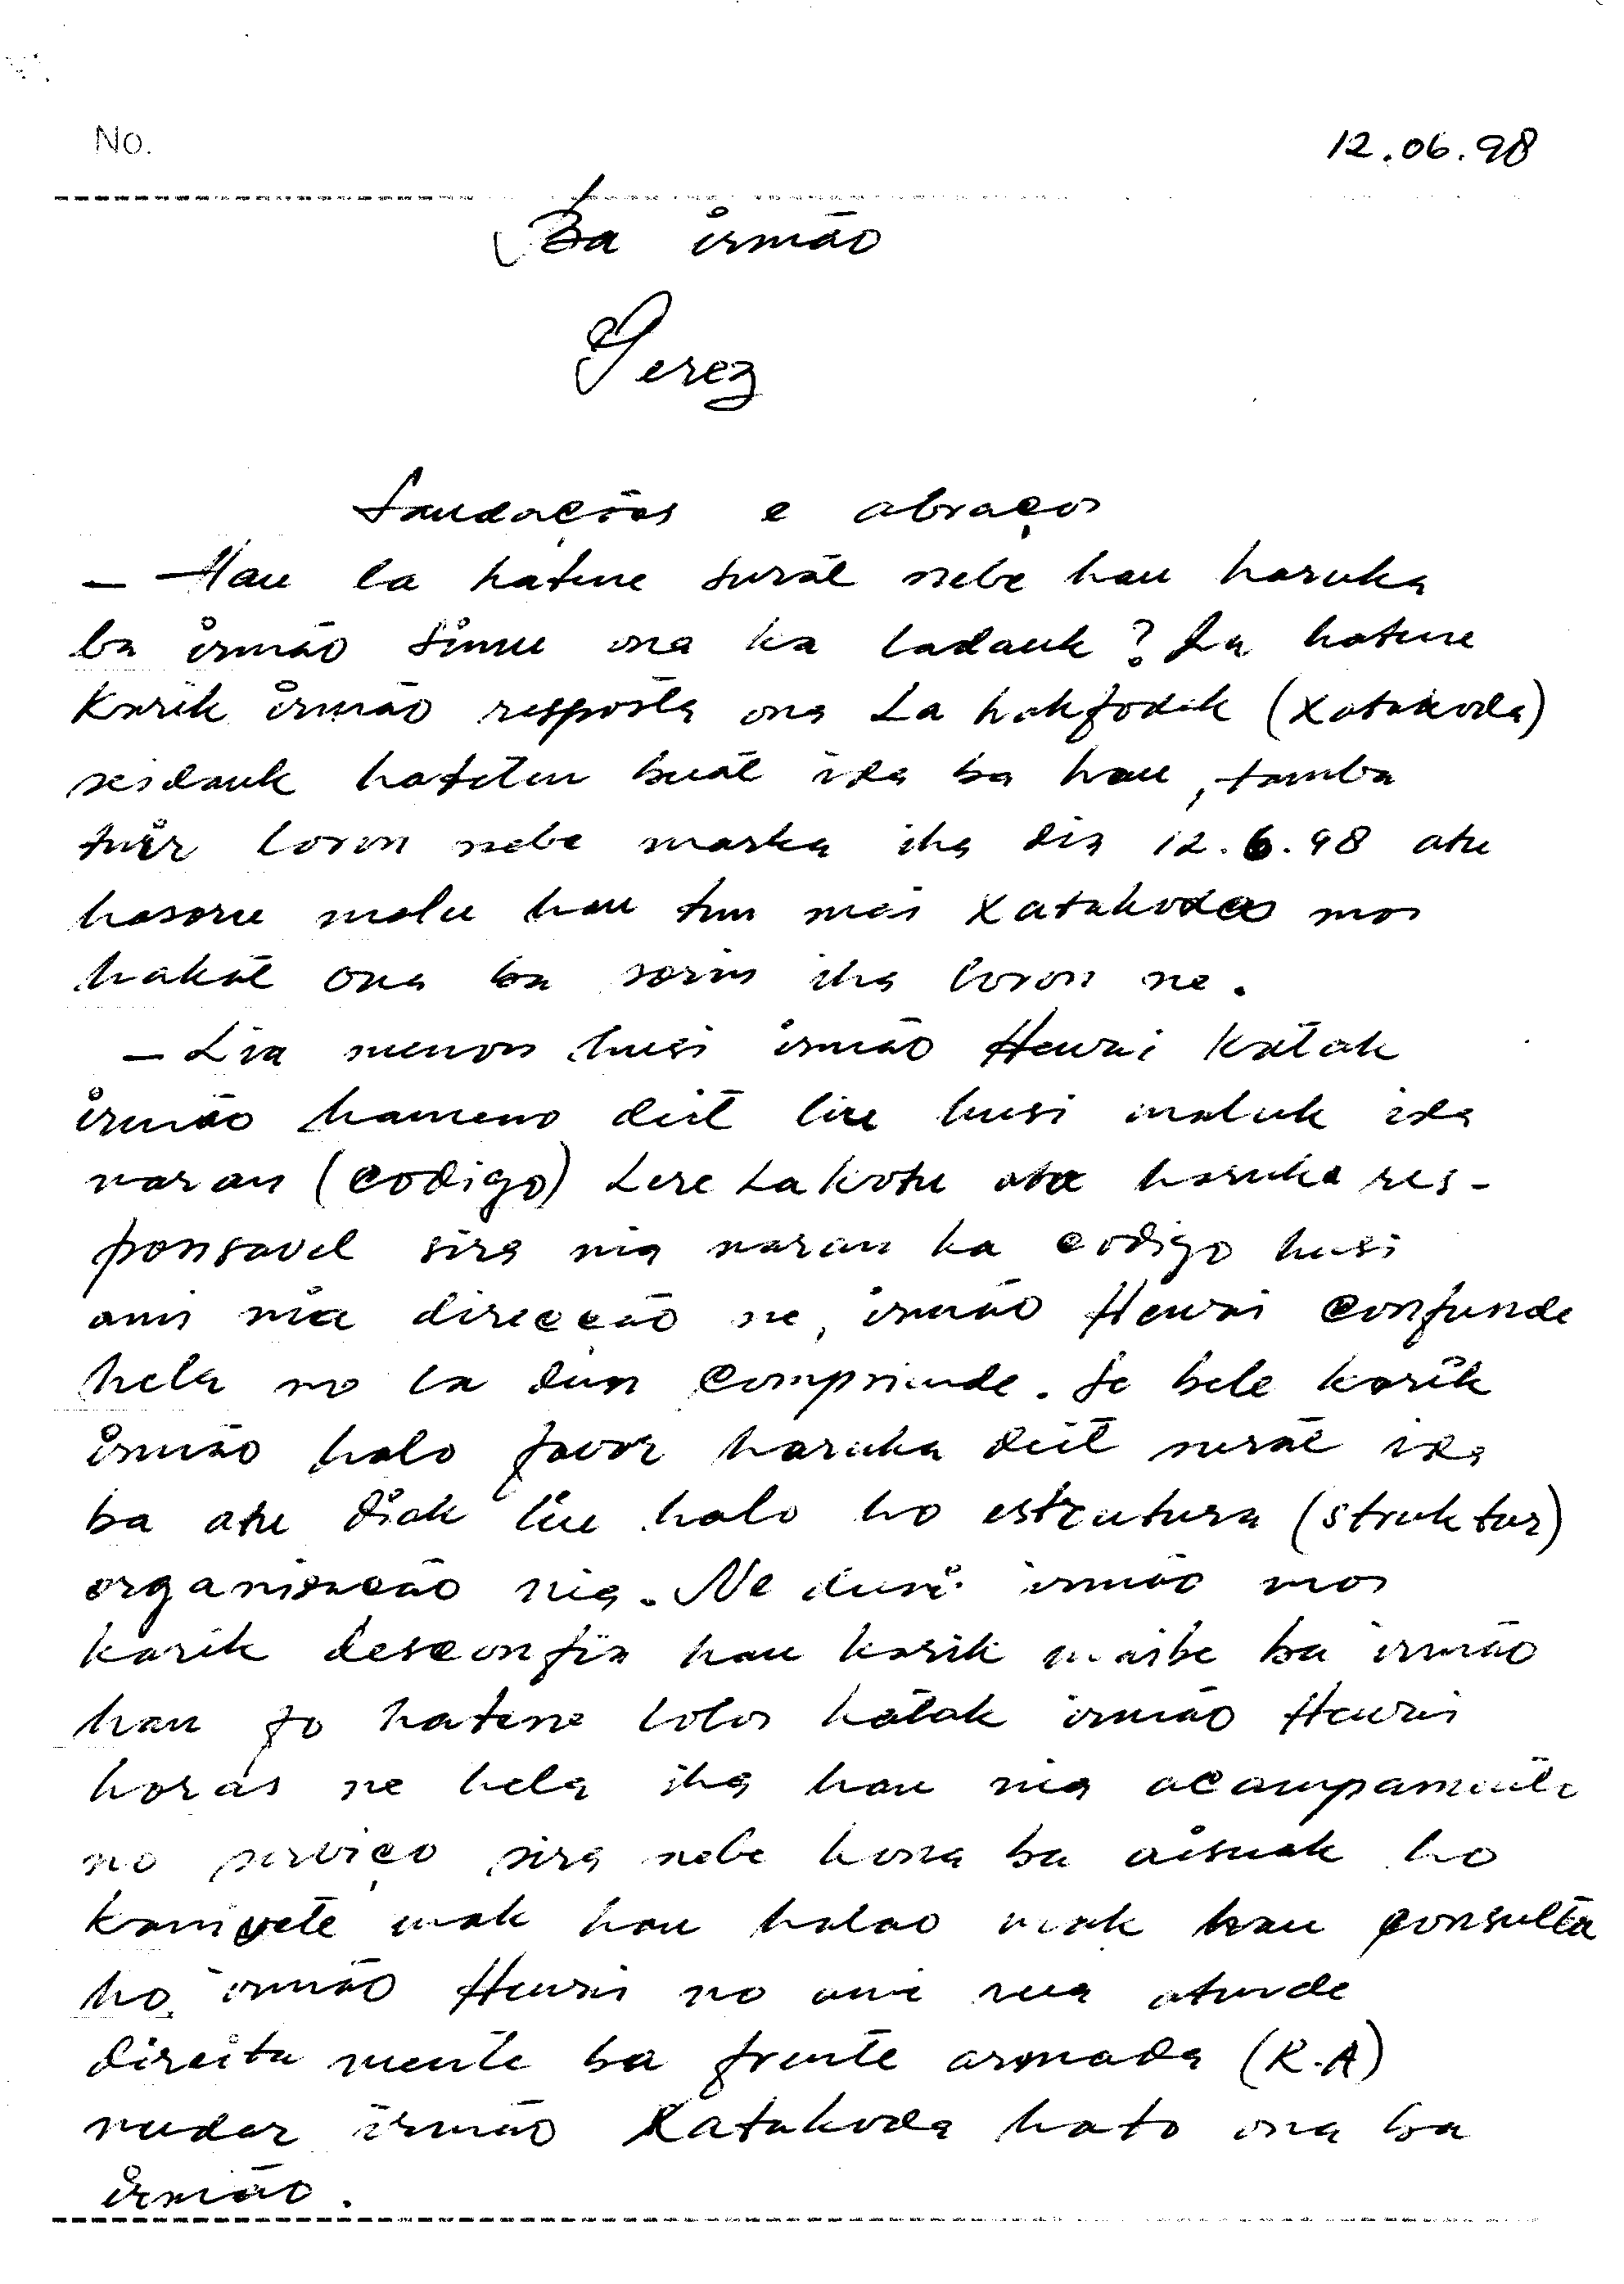 No.
12.06.98
Ba irmão
Perez
Saudações e abraços
– Hau la hatene surat nebe hau haruka
ba irmão simu ona ka ladauk? La hatene
karik irmão resposta ona La hakfodak (Xatakoda)
seidauk hatutu buat ida ba hau, tamba
tuir loron nebe marka iha dia 12.6.98 atu
hasoru malu hau tun mai Xatakoda mos
hakat ona ba sorin iha loron ne.
– Lia menon husi irmão Henri katak
irmão hameno deit liu husi maluk ida
naran (codigo) Lere La kotu atu haruka res-
ponsavel sira nia naran ka codigo husi
ami nia direcção ne, irmão Henri confunde
hela no la dun compriende. Se bele karik
irmão halo favor haruka deit surat ida
ba atu diak liu halo ho estrutura (struktur)
organização nia. Ne duni irmão mos
karik desconfia hau karik maibe ba irmão
hau fo hatene lolos katak irmão Henri
horas ne hela iha hau nia acampamento
no serviço sira nebe kona ba aisuak ho
kanivete mak hau halao mak hau consulta
ho irmão Henri no ami rua atende
direita mente ba frente armada (R.A)
nudar irmão Xatakoda hato ona ba
irmão.